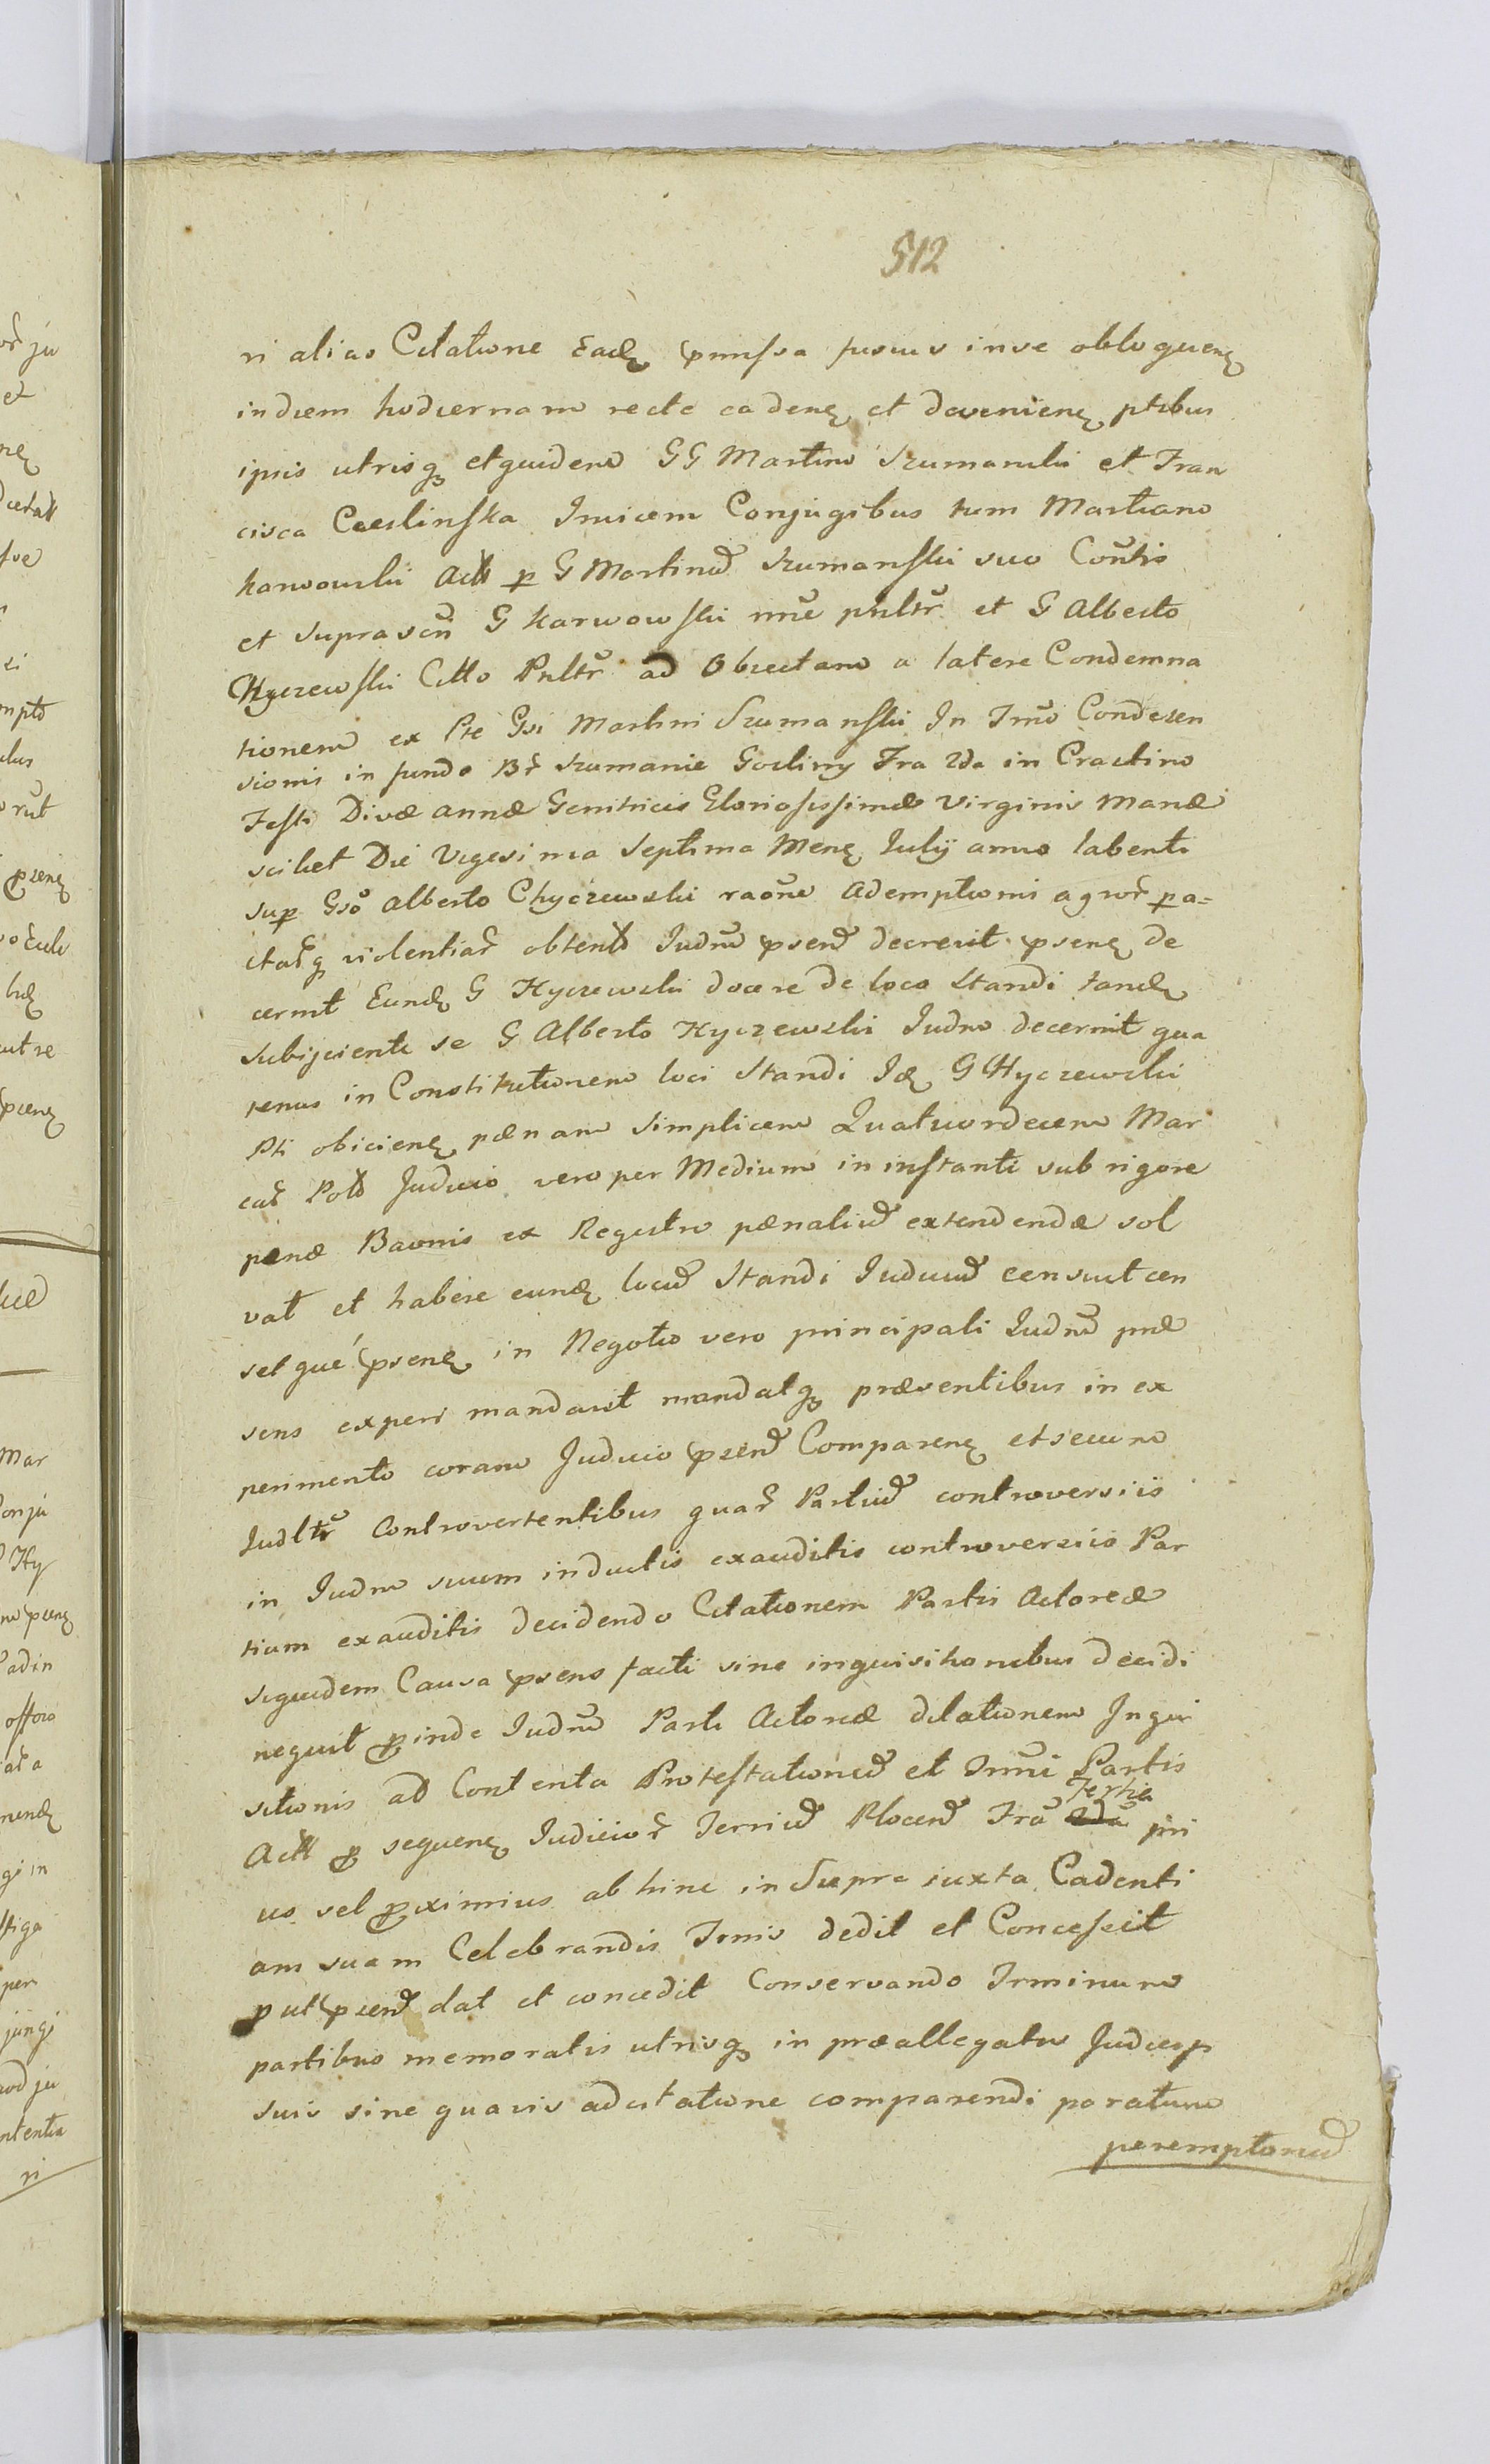 512
ri alias Citatione eadē p̄missa fusius in se obloquenē
in diem hodiernam recte cadenē et devenienē ptibus
ipsis utrisqꝫ et quidem GG Martino Szumanski et Fran
cisca Cieslinska Invicem Conjugibus tum Martiano
Karwowski Actt p G Martinū Szumanski suo Contis
et suprascn G Karwowski nne pnltr et G Alberto
Hyczewski Citto Pnltr ad Obiectam a latere Condemna
tionem ex Pte Gsi Martini Szumanski In Tmo Condesen
sionis in fundo Br Szumanie Gosliny Fra 2da in Crastino
Festi Divæ Annæ Genitricis Gloriosissimæ Virginis Mariæ
scilict Die Vigesima Septima Menē July anno labenti
sup Gso Alberto Chyczewski raone ademptioni agror pa=
ctarqꝫ violentiar obtentā Judm psenē decrevit psenē de
cernit Eundē G Hyczewski docere de loco standi tandē
subijcienti se G Alberto Hyczewski Judm decernit qua
tenus in Constitutionem loci standi Idē G Hyczewski
Pti obicienē pænam simplicem Quatuordecem Mar
car Pol Judicio vero per Medium in instanti sub rigore
penæ Baonis ex Registro pænaliū extendendæ sol
vat et habere eundē locū standi Judiciū censuit cen
set que psenē in Negotio vero principali Judm præ
sens experi mandavit mandatqꝫ præsentibus in ex
perimento coram Judicio psenē Comparenē et secum
Judltr controvertentibus quar Partiū controversiis
in Judm suum inductis exauditis controversiis Par
tium exauditis decidendo Citationem Partis Actoreæ
siquidem Causa psens facti sine inquisitionibus decidi
nequit proinde Judm Parti Actoreæ dilationem Inqui
sitionis ad Contenta Protestationū et Inni Partis
Actt p sequenē Judicior Terriū Plocenē Fra 2da Tertia pri
us vel proximius ab hinc in Supra iuxta Cadenti
am suam Celebrandis Tmis dedit et Concessit
p ut psenē dat et concedit Conservando Trminum
partibus memoratis utrisqꝫ in præallegatis Judicys
suis sine quavis adcitatione comparendi paratum
peremptoriū